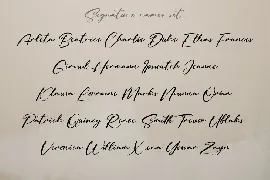 Signature names set
Arleta Beatrice Charlie Duke Ethas Francis
Grand Hermann Ipswitch Jeanne
Klawa Lorraine Marks Newman Orina
Patrick Quincy Rymer Smith Trevor
Veronica William Xena Yuvan Zayn